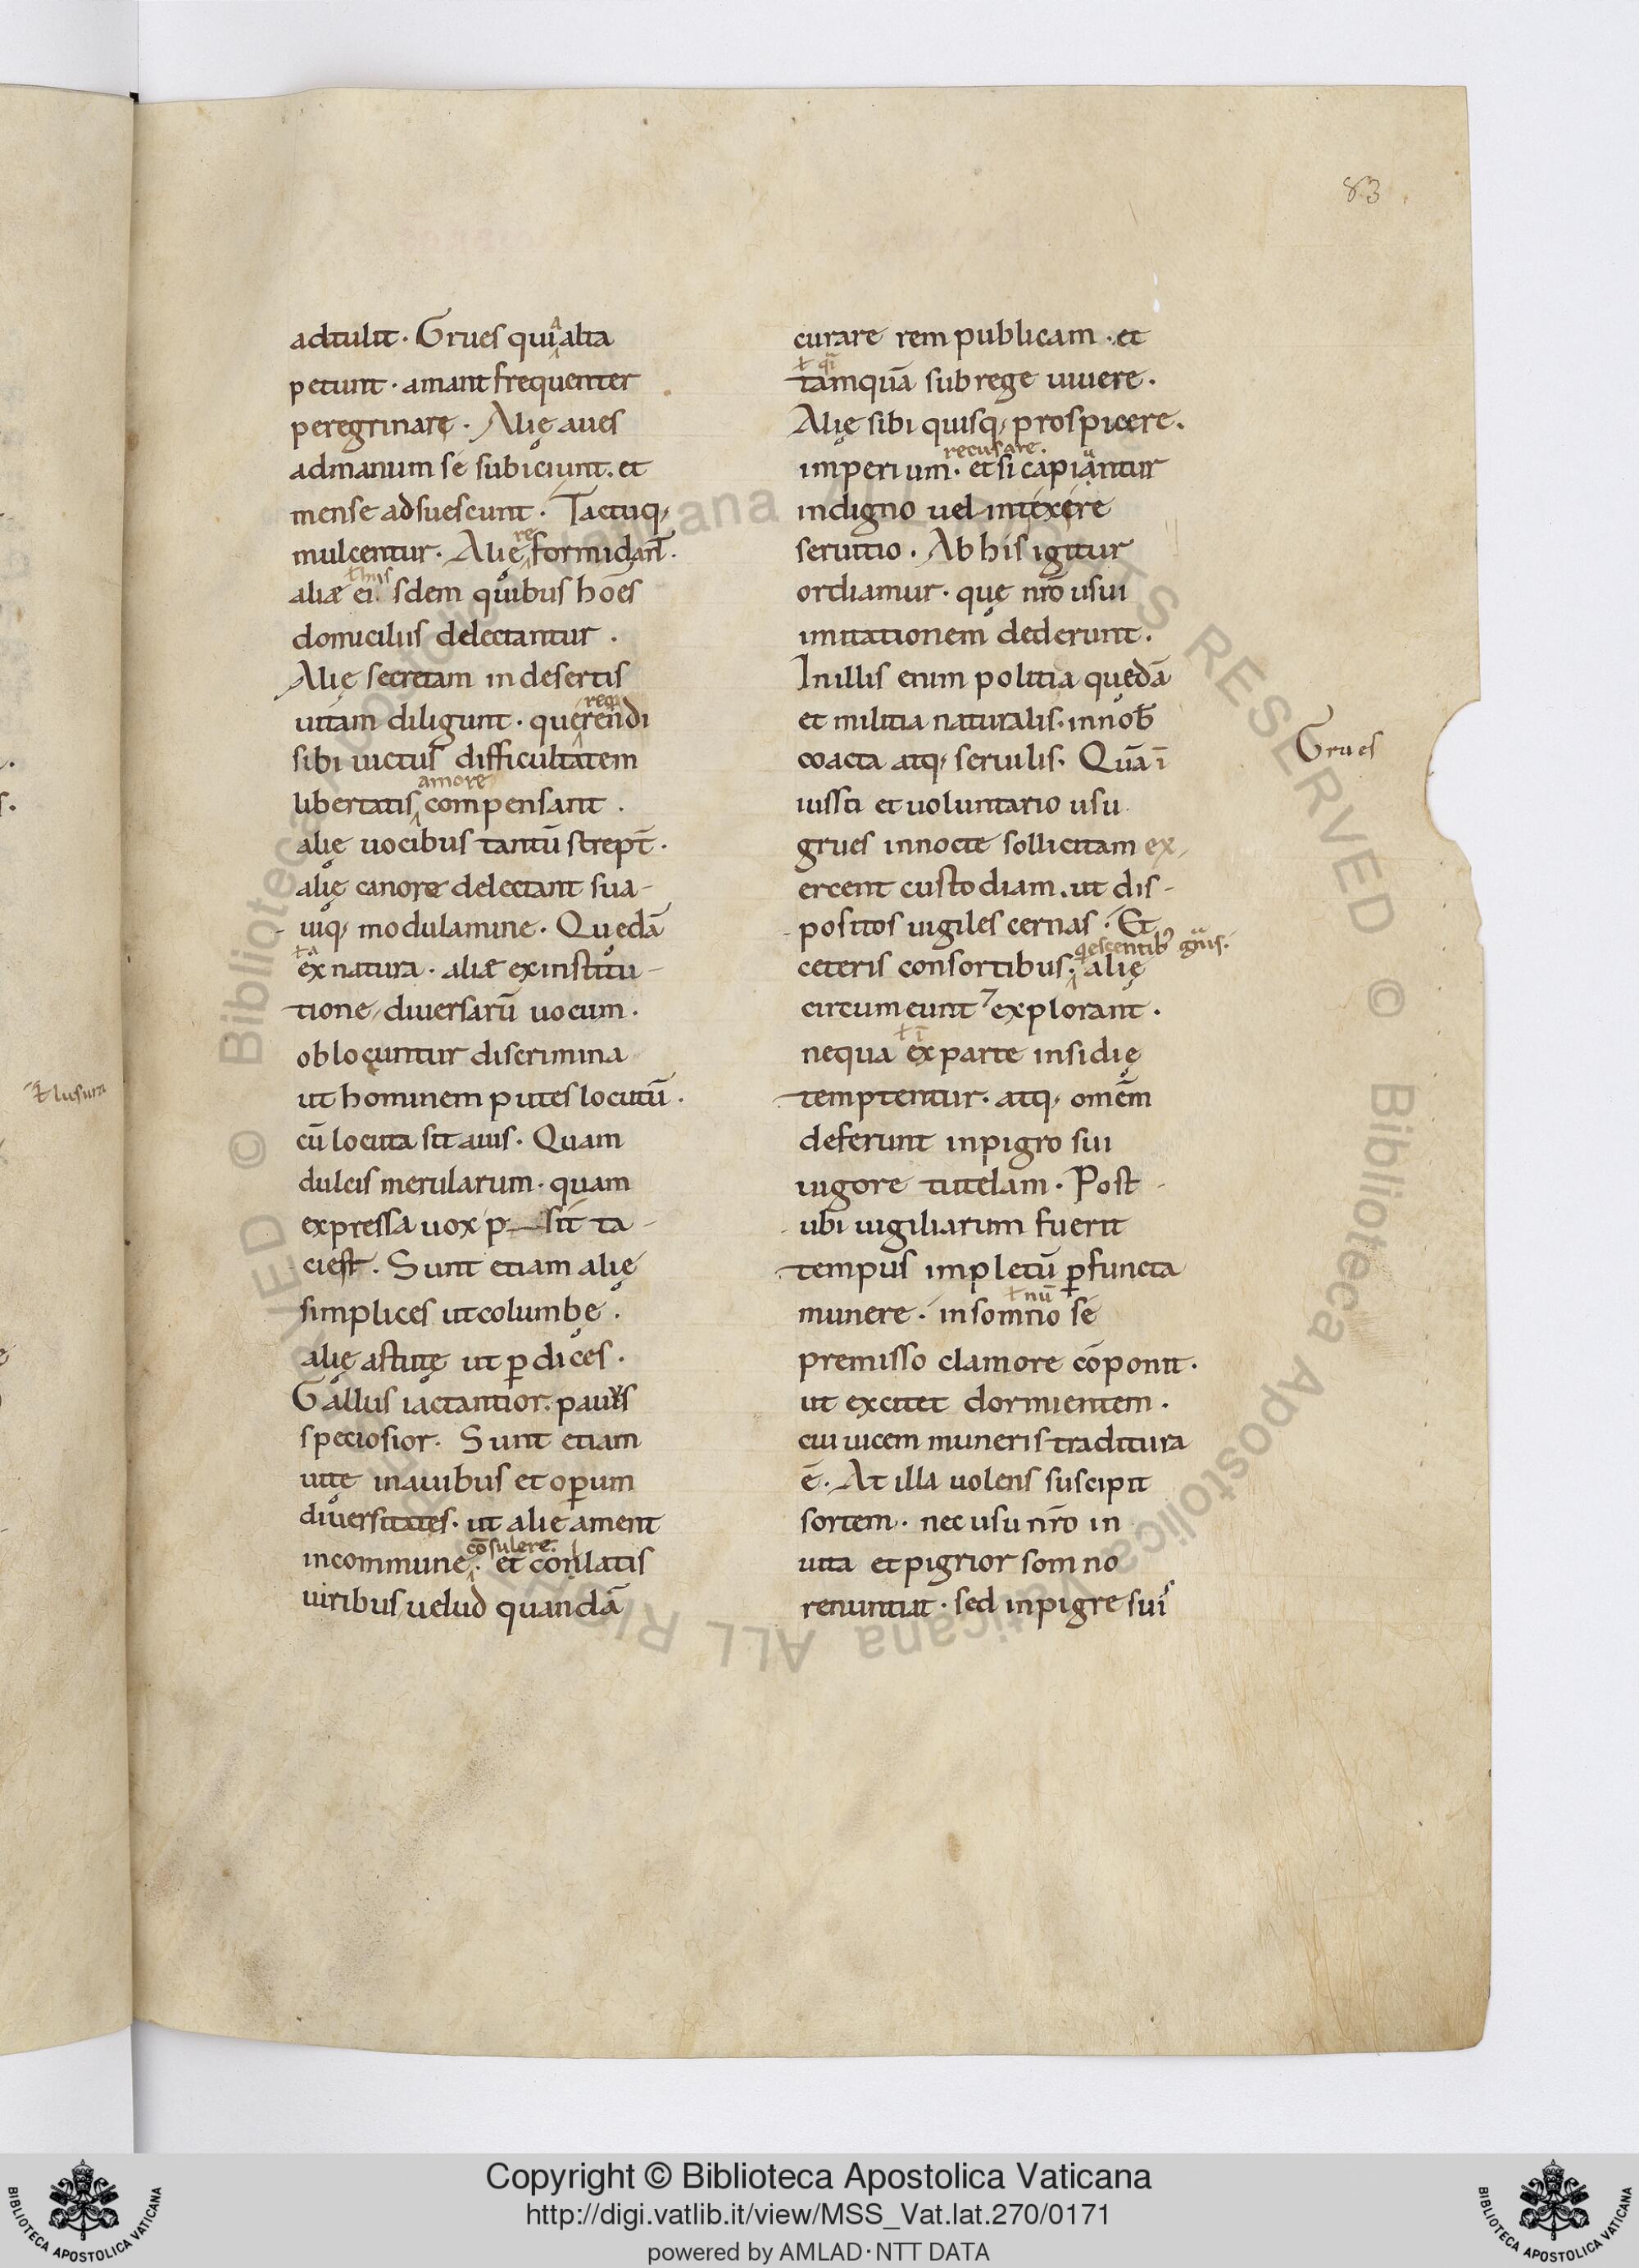 83
adtulit · Grues qui alta
a
petunt · amant frequenter
peregrinarę · Alię aues
admanum se subiciunt · et
mense adsuescunt · Tactuq;
mulcentur · Alię formidant̄ ·
re
aliæ ei sdem quibus hoēs
ł hiis
domiciliis delectantur ·
Alię secretam in desertis
uitam diligunt · querendi
req
sibi uictus difficultatem
libertatis compensant ·
amore
alię uocibus tantū strept̄ ·
alię canore delectant sua-
uiq; modulamine · Quedā
ex natura · aliæ exinstitu-
ł a
tione, diuersarū uocum ·
obloquntur discrimina
ut hominem putes locutū ·
cū locuta sit auis · Quam
dulcis merularum · quam
expressa uox p sit ta-
ciest · Sunt etiam alię
simplices ut columbę ·
alię astutę ut ꝑdices ·
Gallus iactantior · pauus
speciosior · Sunt etiam
uitę inauibus et oꝑum
diuersitates · ut alie ament
incommune · et conlatis
cōsulere. l
uiribus uelud quandā
curare rem publicam · et
tamquā sub rege uiuere ·
ł q̄i
Alię sibi quisq; prospicere ·
imperium · et si capiantur
recusare. u
indigno uel intexere
seruitio · Ab his igitur
ordiamur · quę nr̄o usui
imitationem dederunt ·
In illis enim politia quędā
et militia naturalis · innob̄
coacta atq; seruilis · Quā ī
iussti et uoluntario usu
grues innocte sollicitam ex,
ercent custodiam · ut dis-
positos uigiles cernas · Et
ceteris consortibus · alię
qescentib; gn̄is.
circumeunt ⁊ explorant ·
nequa ex parte insidię
ł ī
temptentur · atq; omēm
deferunt inpigro sui
uigore tutelam · Post
ubi uigiliarum fuerit
tempus impletū ꝑfuncta
munere · in somno se
ł nū
premisso clamore cōponit ·
ut excitet dormientem ·
cui uicem muneris traditura
ē · At illa uolens suscipit
sortem · nec usu nr̄o in
uita et pigrior somno
renuntiat · sed inpigre sui
s
Grues
ł lusura
Copyright © Biblioteca Apostolica Vaticana
http://digi.vatlib.it/view/MSS_Vat.lat.270/0171
powered by AMLAD·NTT DATA
BIBLIOTECA APOSTOLICA VATICANA
BIBLIOTECA APOSTOLICA VATICANA